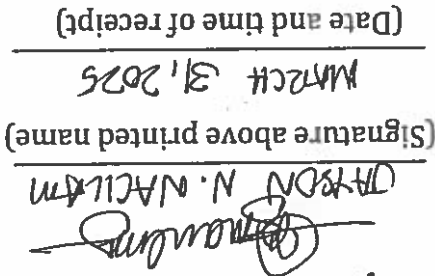 JAYSON N.
(Signature above printed name)
MARCH 31, 2025
(Date and time of receipt)